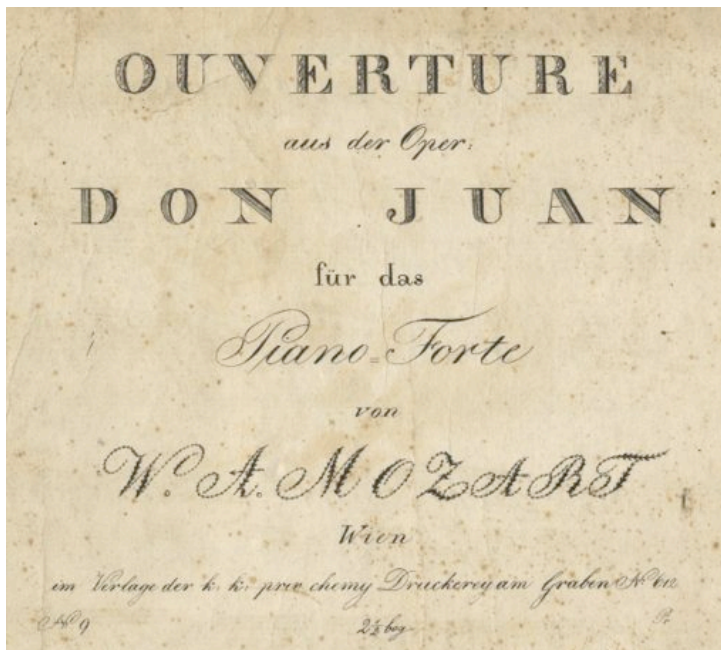 OUVERTURE
aus der Oper:
DON JUAN
für das
Piano=Forte
von
W. A. MOZART
Wien
im Verlage der k: k: priv chemy Druckerey am Graben N°
N° 9 2½ bog